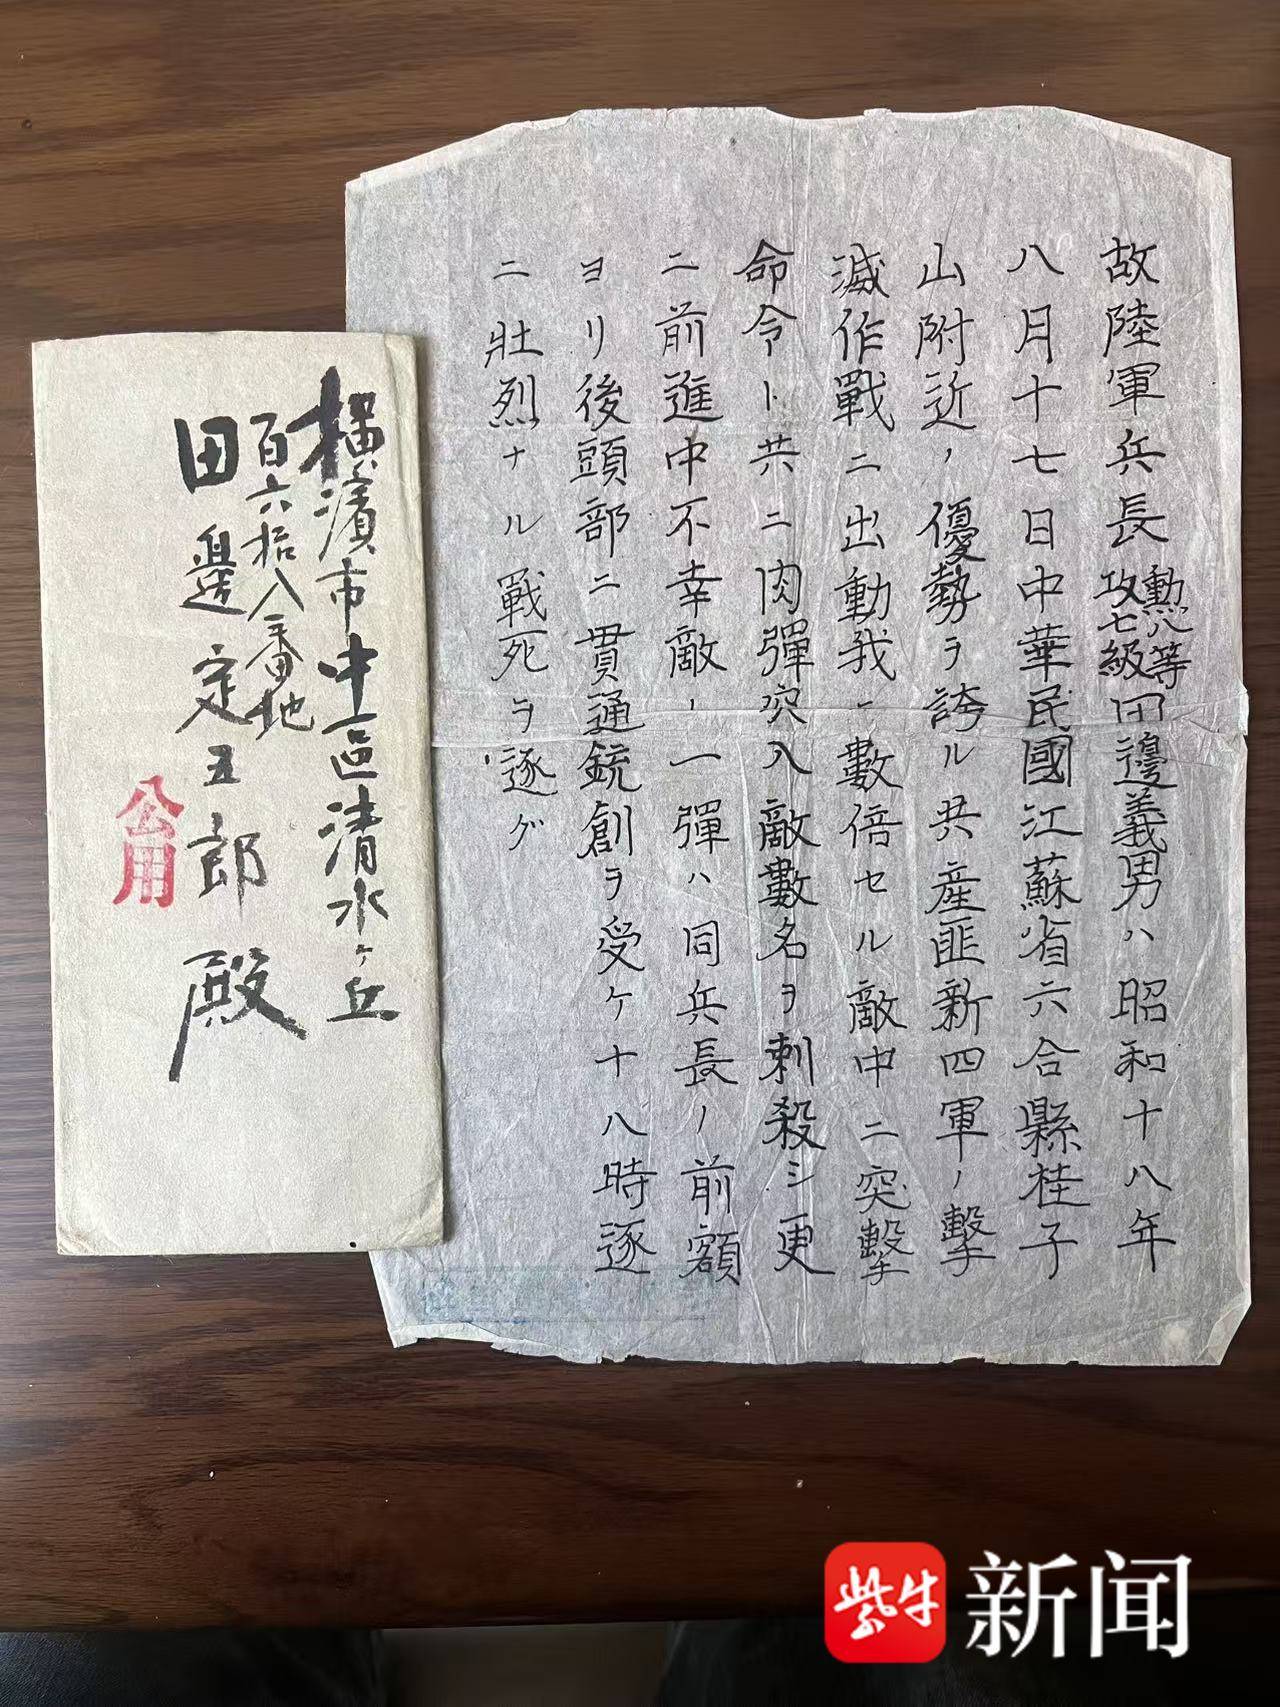 故陸軍兵長勲八等攻七級田邊義男ハ昭和十八年
八月十七日中華民國江蘇省六合縣桂子
山附近ノ優勢ヲ誇ル共産匪新四軍ノ擊
滅作戰ニ出動我ニ數倍セル敵中ニ突擊
命令ト共ニ肉彈突入敵數名ヲ刺殺シ更
ニ前進中不幸敵ノ一彈ハ同兵長ノ前額
ヨリ後頭部ニ貫通銃創ヲ受ケ十八時逐
ニ壯烈ナル戰死ヲ逐グ
橫濱市中區清水ヶ丘
百六拾八番地
田邊定五郎殿
公用
紫牛新闻